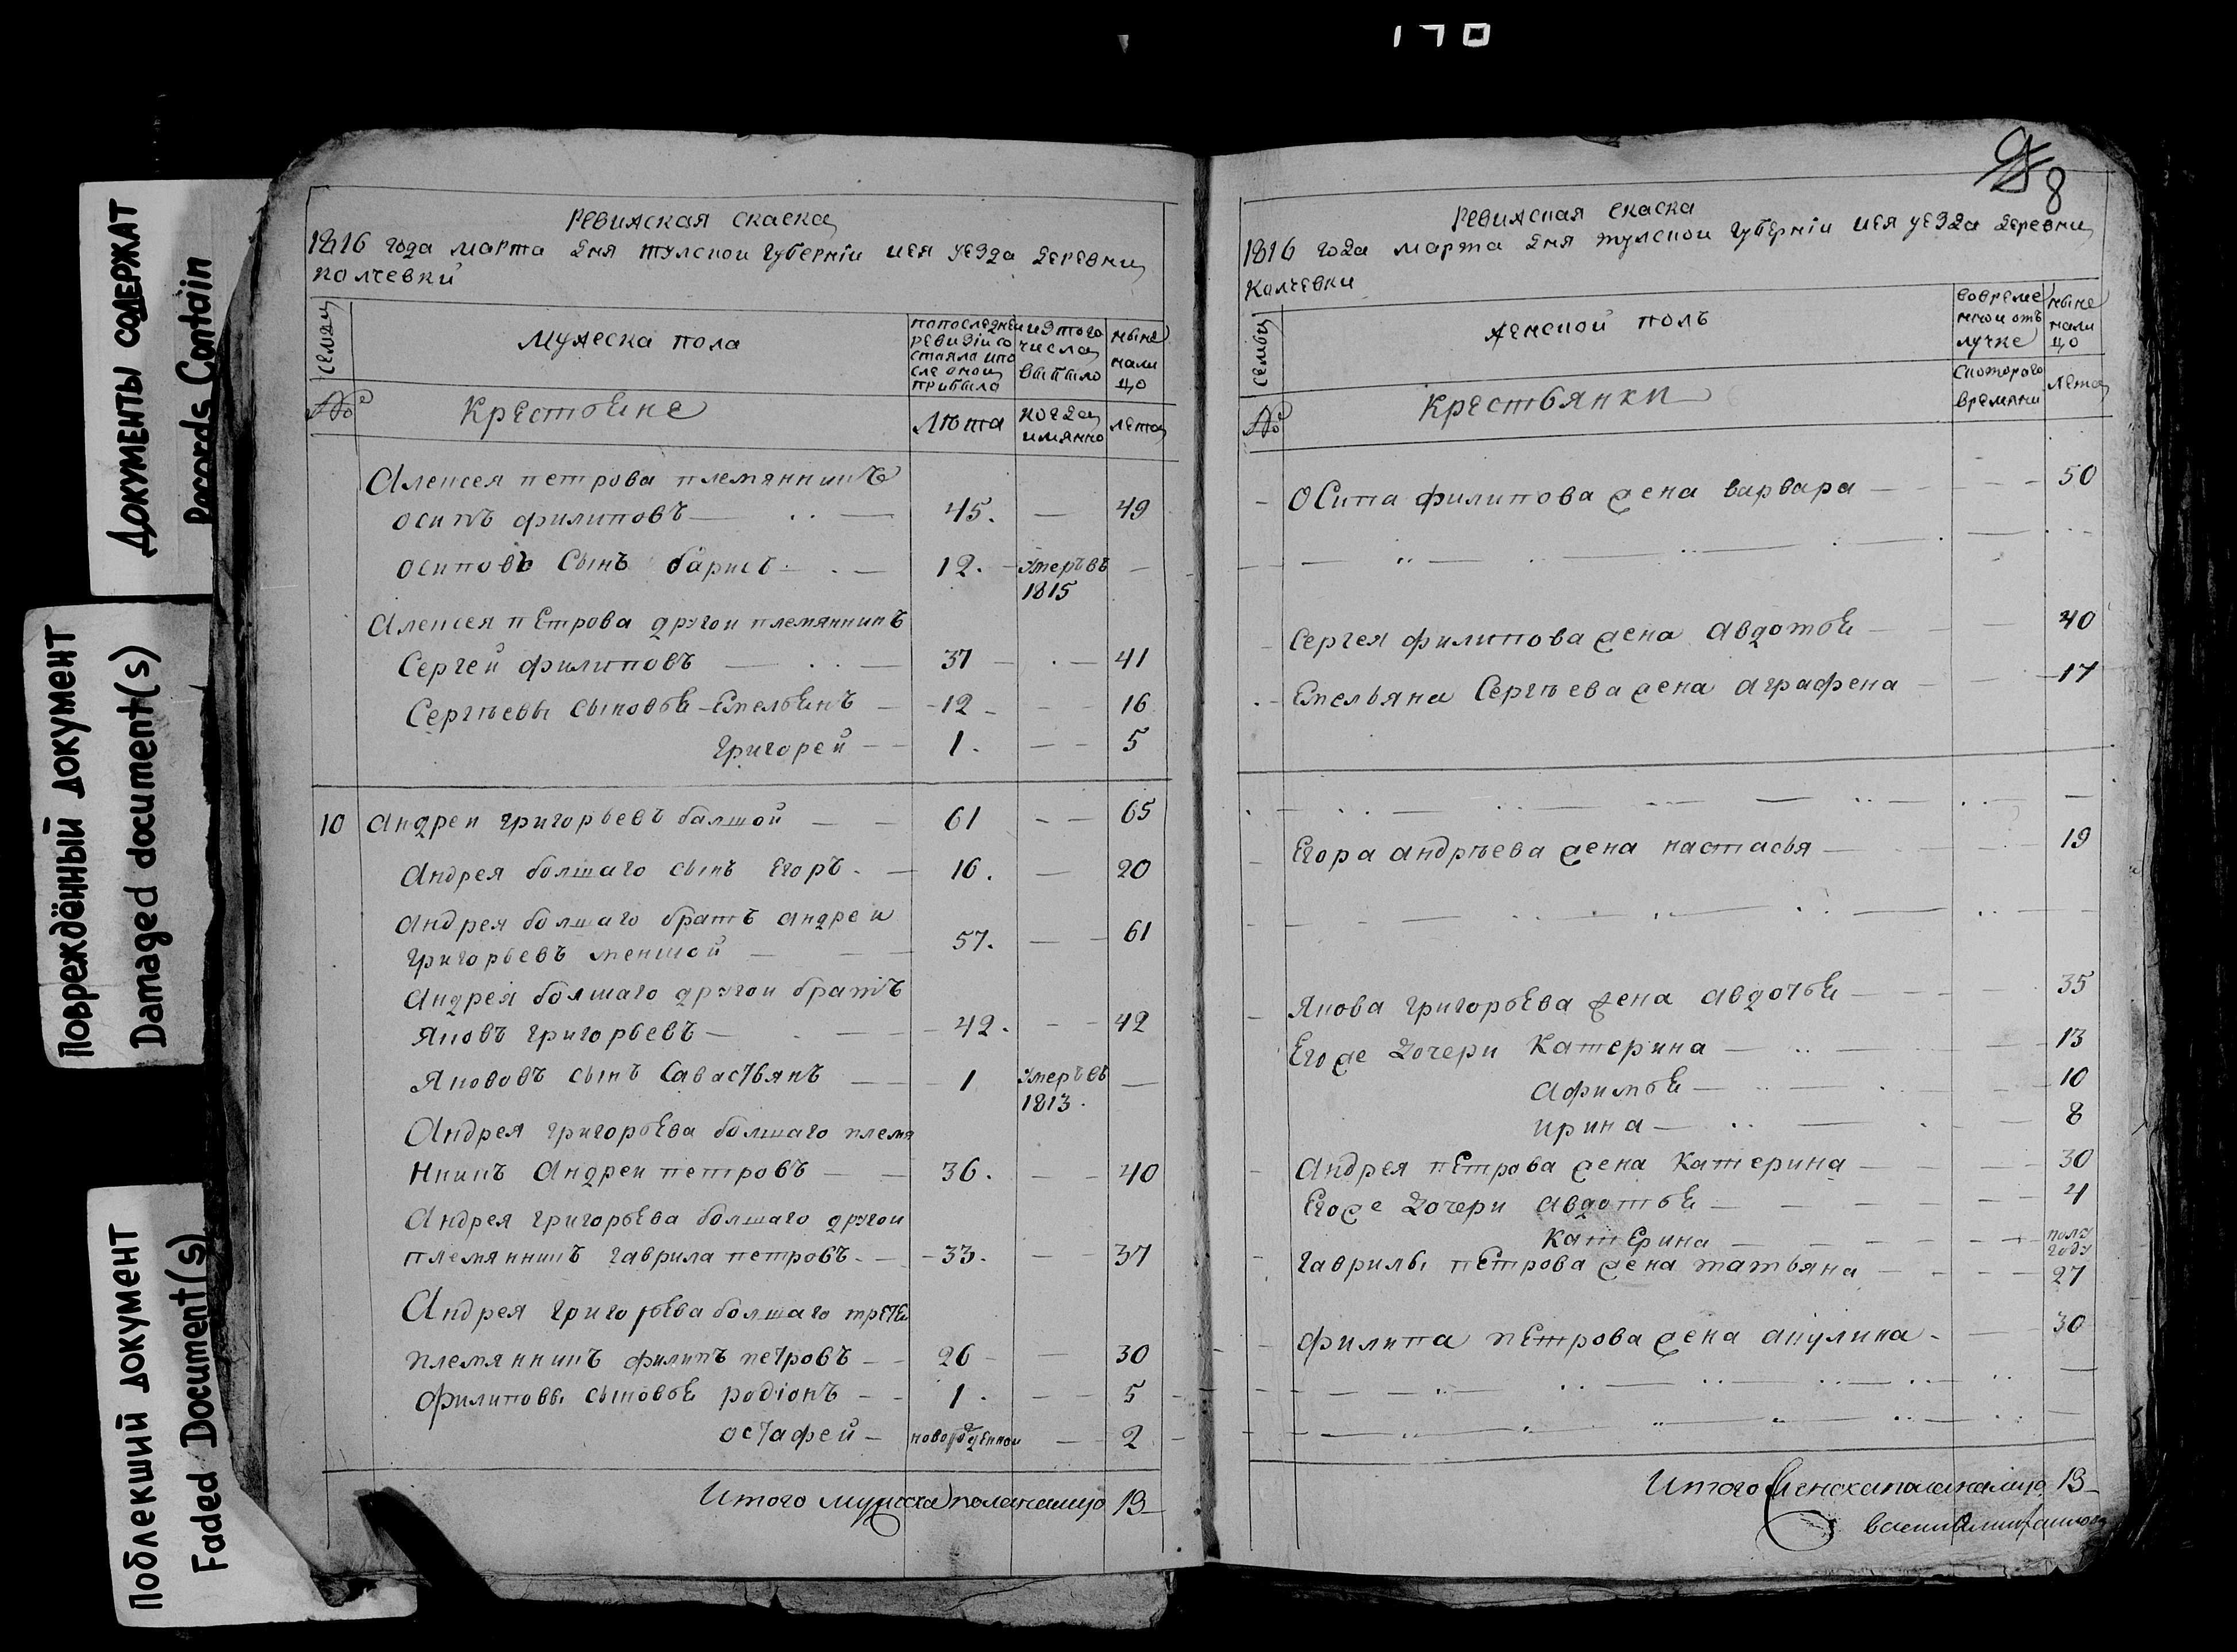 170
ДОКУМЕНТЫ СОДЕРЖАТ
Records Contain
Повреждённый документ
Damaged document(s)
Поблекший документ
Faded Document(s)
Ревижская скаска
1816 года марта дня тулской губерніи иея уезда деревни
колчевки
семьи
мужеска пола
попоследнеи
ревизіи со
стояло ипо
сле оной
прибыло
изтого
числа
выбыло
ныне
нали
цо
№
Крестьяне
Лѣта
когда
имянно
лета
Алексея петрова племянникъ
осипъ филиповъ 45. 49
осиповъ Сынъ барисъ 12. умеръ въ
1815
Алексея петрова другои племянникъ
Сергеи филиповъ 37 41
Сергѣевы сыновья Емельянъ 12 16
григорей 1. 5
10 Андреи григорьевъ балшой 61 65
Андрея болшаго сынъ Егоръ 16. 20
Андрея болшаго братъ андреи
григорьевъ меншой 57. 61
Андрея болшаго другои братъ
Яковъ григорьевъ 42. 42
Яковавъ сынъ Савастьянъ 1 умеръ въ
1813.
Андрея григорьева болшаго племя
нникъ Андреи петровъ 36. 40
Андрея григорьева болшаго другои
племянникъ гаврила петровъ 33. 37
Андрея григорьева болшаго третеи
племянникъ филипъ петровъ 26 30
филиповы сыновья родіонъ 1. 5
остафей новорожденнои 2
Итого мужеска пола налицо 13
8
Ревижская скаска
1816 года марта дня тулской губерніи иея уезда деревни
Колчевки
семьи
женской полъ
вовреме
нной отъ
лучке
ныне
нали
цо
№
Крестьянки
Скоторого
времяни
лета
Осипа филипова жена варвара 50
Сергея филипова жена Авдотья 40
Емельяна Сергѣева жена аграфена 17
Егора андрѣева жена настасья 19
Якова григорьева жена авдотья 35
Его же дочери Катерина 13
Афимья 10
ирина 8
Андрея петрова жена Катерина 30
Его же дочери авдотья 4
Катерина полу
году
гаврилы петрова жена татьяна 27
филипа петрова жена акулина 30
Итого женска пола налицо 13